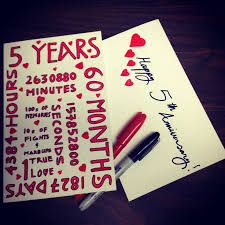 5 YEARS
2630880
MINUTES
60 MONTHS
4384 HOURS
100s OF
MEMORIES
SECONDS
157852800
10s OF
FIGHTS
&
MAKEUPS
1 TRUE
LOVE
1827 DAYS
Happy 5th Anniversary!